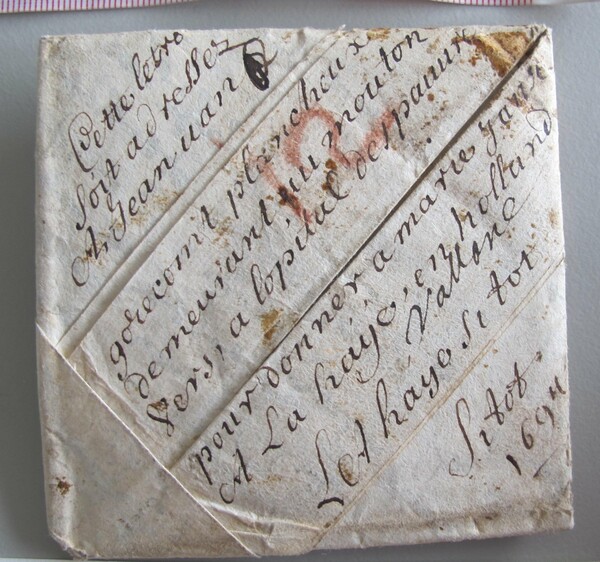 Cette letre
soit adressez
A Jean uan
goiecomit plancheux
demeurant au mouton
vers, a lopital des pauure
pour donner a marie
A La haÿe, en holland
Vallone
LA haye si tot
si tot.
1694
12